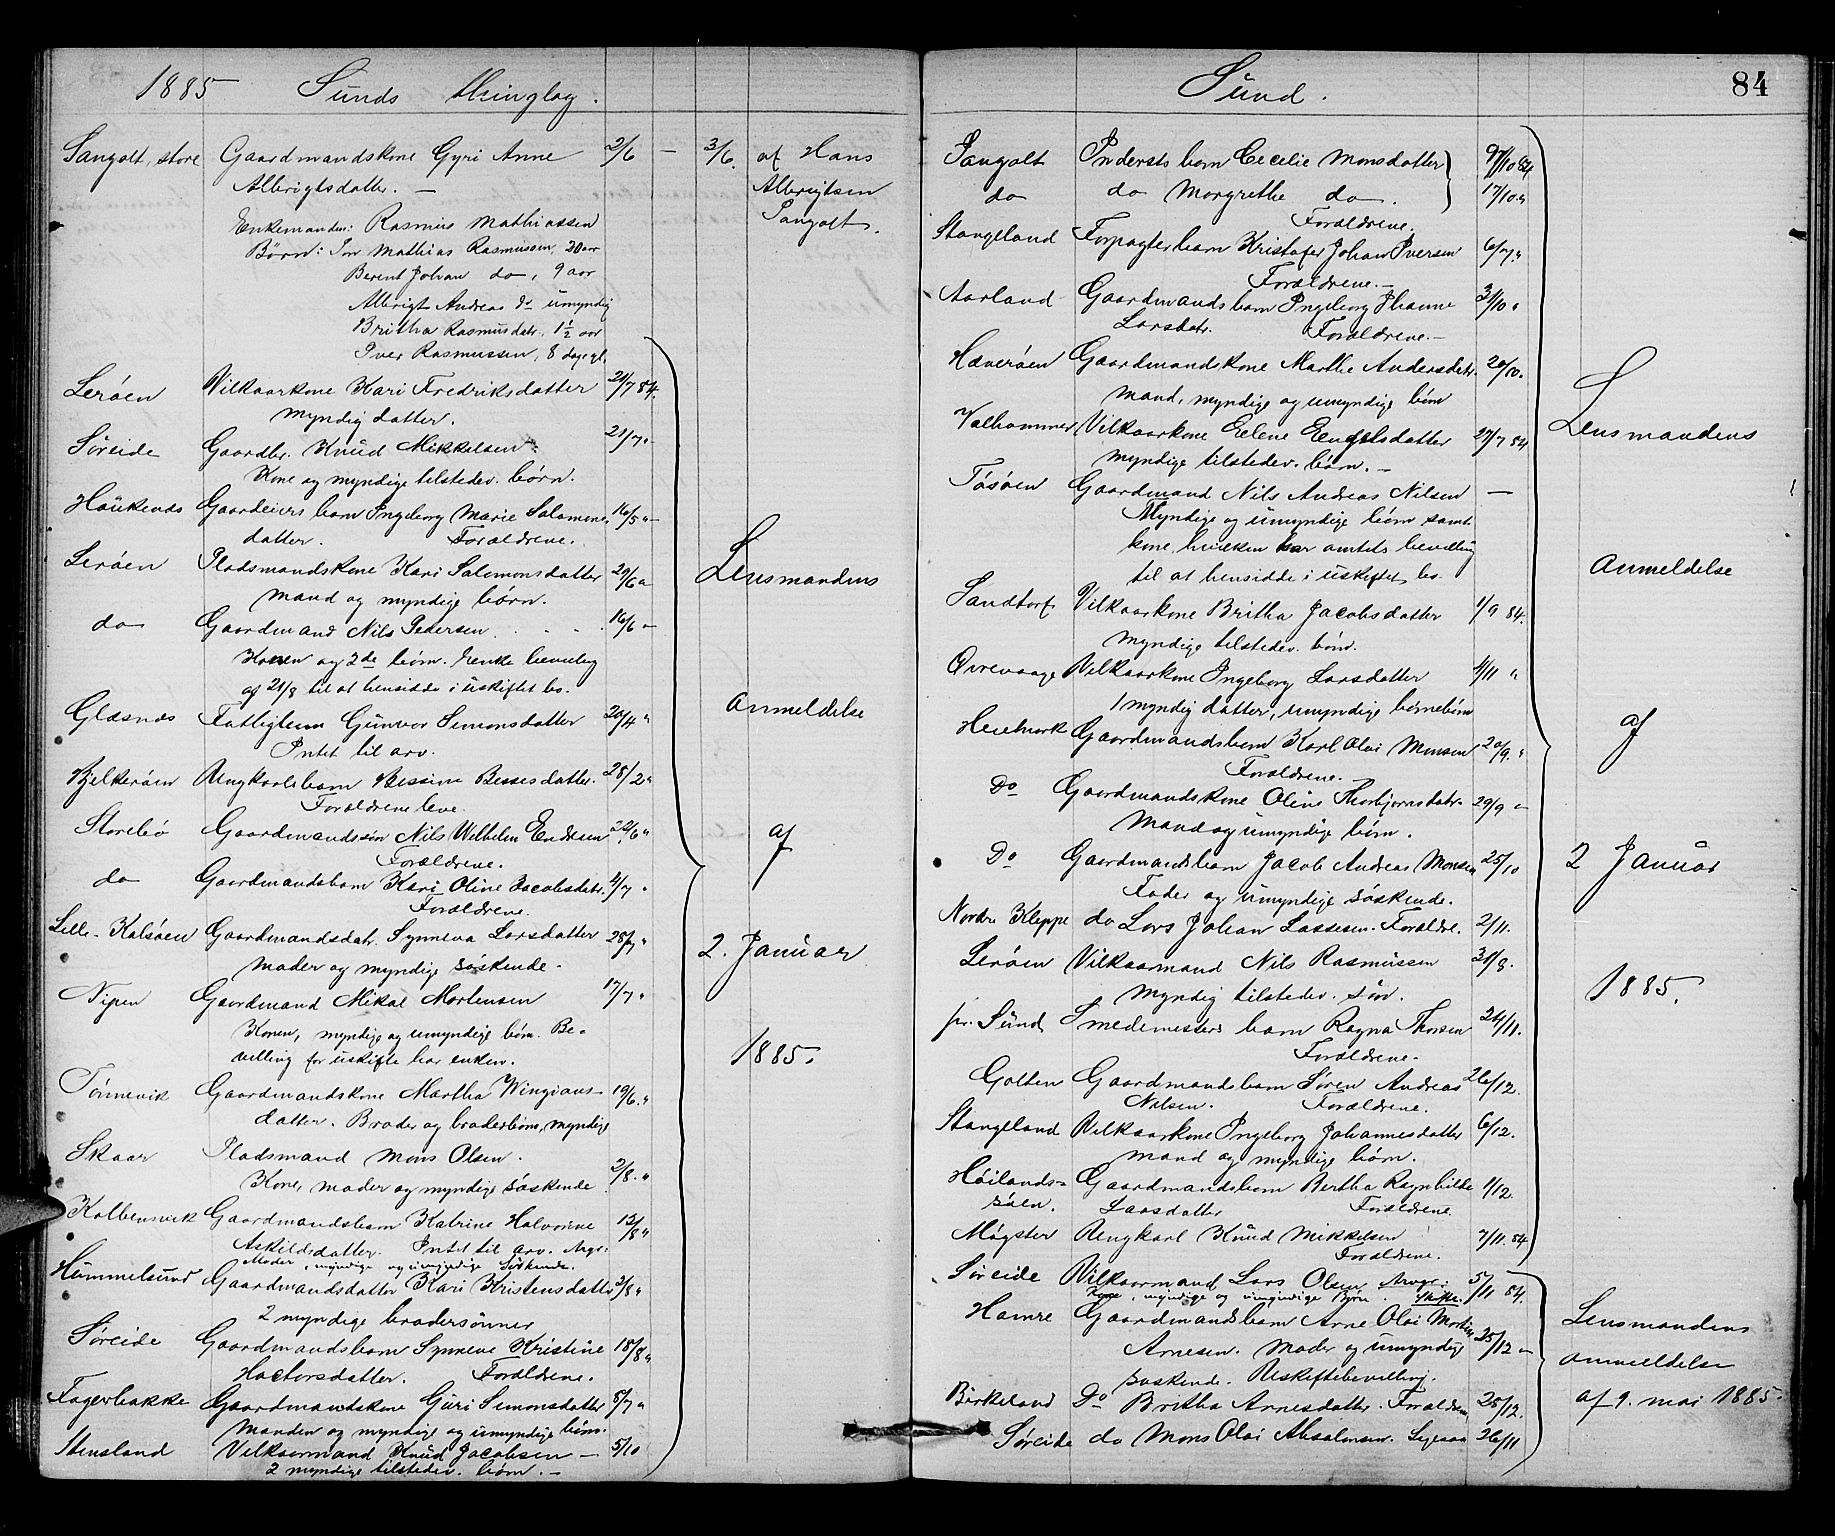 1885 Sunds Thinglag.
Sangolt, store Gaardmandskone Gyri Anne 2/6 — 3/6. af Hans
Albrigtsdatter. — Albrigtsen
Sangolt.
Enkemanden: Rasmus Mathiassen
Børn: Mathias Rasmussen, 20 aar
Berent Johan do, 9 aar
Albrigt Andreas do umyndig
Britha Rasmusdatr. 1½ aar
Iver Rasmussen, 8 dage gl.
Lerøen Vilkaarkone Kari Fredriksdatter 21/7 84.
myndig datter.
Søreide Gaardbr. Knud Mikkelsen 21/7 "
Kone og myndige tilstedev. børn.
Haukenæs Gaardeiers barn Ingeborg Marie Salomons- 16/5 "
datter. Forældrene.
Lerøen Pladsmandskone Kari Salomonsdatter 29/6
mand og myndige børn.
do Gaardmand Nils Pedersen 16/6 "
Konen og 2de børn. Enke bevilling
af 21/8 til at hensidde i uskiftet bo.
Glæsnæs Fattiglem Gunvor Simonsdatter 20/4 "
Intet til arv.
Bjelkerøen Ungkarlsbarn Bessine Bessesdatter. 28/2 "
Forældrene leve.
Storebø Gaardmandssøn Nils Wilhelm Endresen 22/6 "
Forældrene.
do Gaardmandsbarn Kari Oline Jacobsdatr. 4/7 "
Forældrene.
Lille-Kalsøen Gaardmandsdatr. Synneva Larsdatter 28/7 "
Moder og myndige søskende.
Nipen Gaardmand Mikal Mortensen 17/7 "
Konen, myndige og umyndige børn. Be-
villing for uskifte har enken.
Tønnevik Gaardmandskone Martha Wingians- 19/6 "
datter. Broder og broderbørn, myndige
Skaar Pladsmand Mons Olsen. 2/8 "
Kone, moder og myndige søskende
Kolbensvik Gaardmandsbarn Katrine Halvorine 13/8 "
Askildsdatter. Intet til arv.
Moder, myndige og umyndige Søskende.
Hummelsund Gaardmandsdatter Kari Kristensdatter 2/8 "
2 myndige brodersønner
Søreide Gaardmandsbarn Synneve Kristine 18/8 "
Hactorsdatter. Forældrene.
Fagerbakke Gaardmandskone Guri Simonsdatter 8/7 "
Manden og myndige og umyndige børn.
Stensland Vilkaarmand Knud Jacobsen — 5/10
2 myndige tilstedev. børn. —
Lensmandens
Anmeldelse
af
2. Januar
1885.
Sund. 84
Sangolt Inderstsbarn Cecilie Monsdatter 9/10 84
do do Margrethe do. 17/10 "
Forældrene.
Stangeland Forpagterbarn Kristofer Johan Iversen 6/7 "
Forældrene. —
Aarland Gaardmandsbarn Ingeborg Jhanne 3/10 "
Larsdatr. Forældrene. —
Haverøen Gaardmandskone Marthe Andersdatr. 20/10.
mand, myndige og umyndige børn
Valhammer Vilkaarkone Eelene Engelsdatter 27/7 84
Myndige tilstedev. børn. —
Tøsøen Gaardmand Nils Andreas Nilsen —
Myndige og umyndige børn samt
kone, hvilken har amtets bevilling
til at hensidde i uskiftet bo.
Sandtorf Vilkaarkone Britha Jacobsdatter 1/9 84.
Myndige tilstedev. børn.
Øvrevaage Vilkaarkone Ingeborg Larsdatter 4/11 "
1 myndig datter, umyndige børnebørn
Heiemark Gaardmandsbarn Karl Olai Monsen 20/9. "
Forældrene.
Do Gaardmandskone Oline Thorbjørnsdatr. 29/9 "
Mand og umyndige børn.
Do Gaardmandsbarn Jacob Andreas Monsen 25/10
Fader og umyndige søskende.
Nordre Kleppe do Lars Johan Lassesen. Forældre. 2/11.
Lerøen Vilkaarmand Nils Rasmussen 31/8.
Myndig tilstedev. søn.
pr. Sund Smedemesters barn Ragna Thorsen 24/11.
Forældrene.
Golten Gaardmandsbarn Søren Andreas 26/12.
Nilsen. Forældrene.
Stangeland Vilkaarkone Ingeborg Johannesdatter 6/12.
mand og myndige børn.
Høilands- Gaardmandsbarn Bertha Ragnhilde 1/12.
søen. Larsdatter Forældrene.
Møgster Ungkarl Knud Mikkelsen 7/11. 84.
Forældrene.
Søreide Vilkaarmand Lars Olsen 5/11 84.
Kone, myndige og umyndige Børn. Skifte.
Hamre Gaardmandsbarn Arne Olai Martin 25/12 "
Arnesen. Moder og umyndige
søskende. Uskiftebevilling.
Birkeland Do Britha Arnesdatter. Forældrene 28/12.
Søreide do Mons Olai Absalonsen. Ligesaa 26/11
Lensmandens
Anmeldelse
af
2 Januar
1885.
Lensmandens
anmeldelse
af 9. mai 1885.